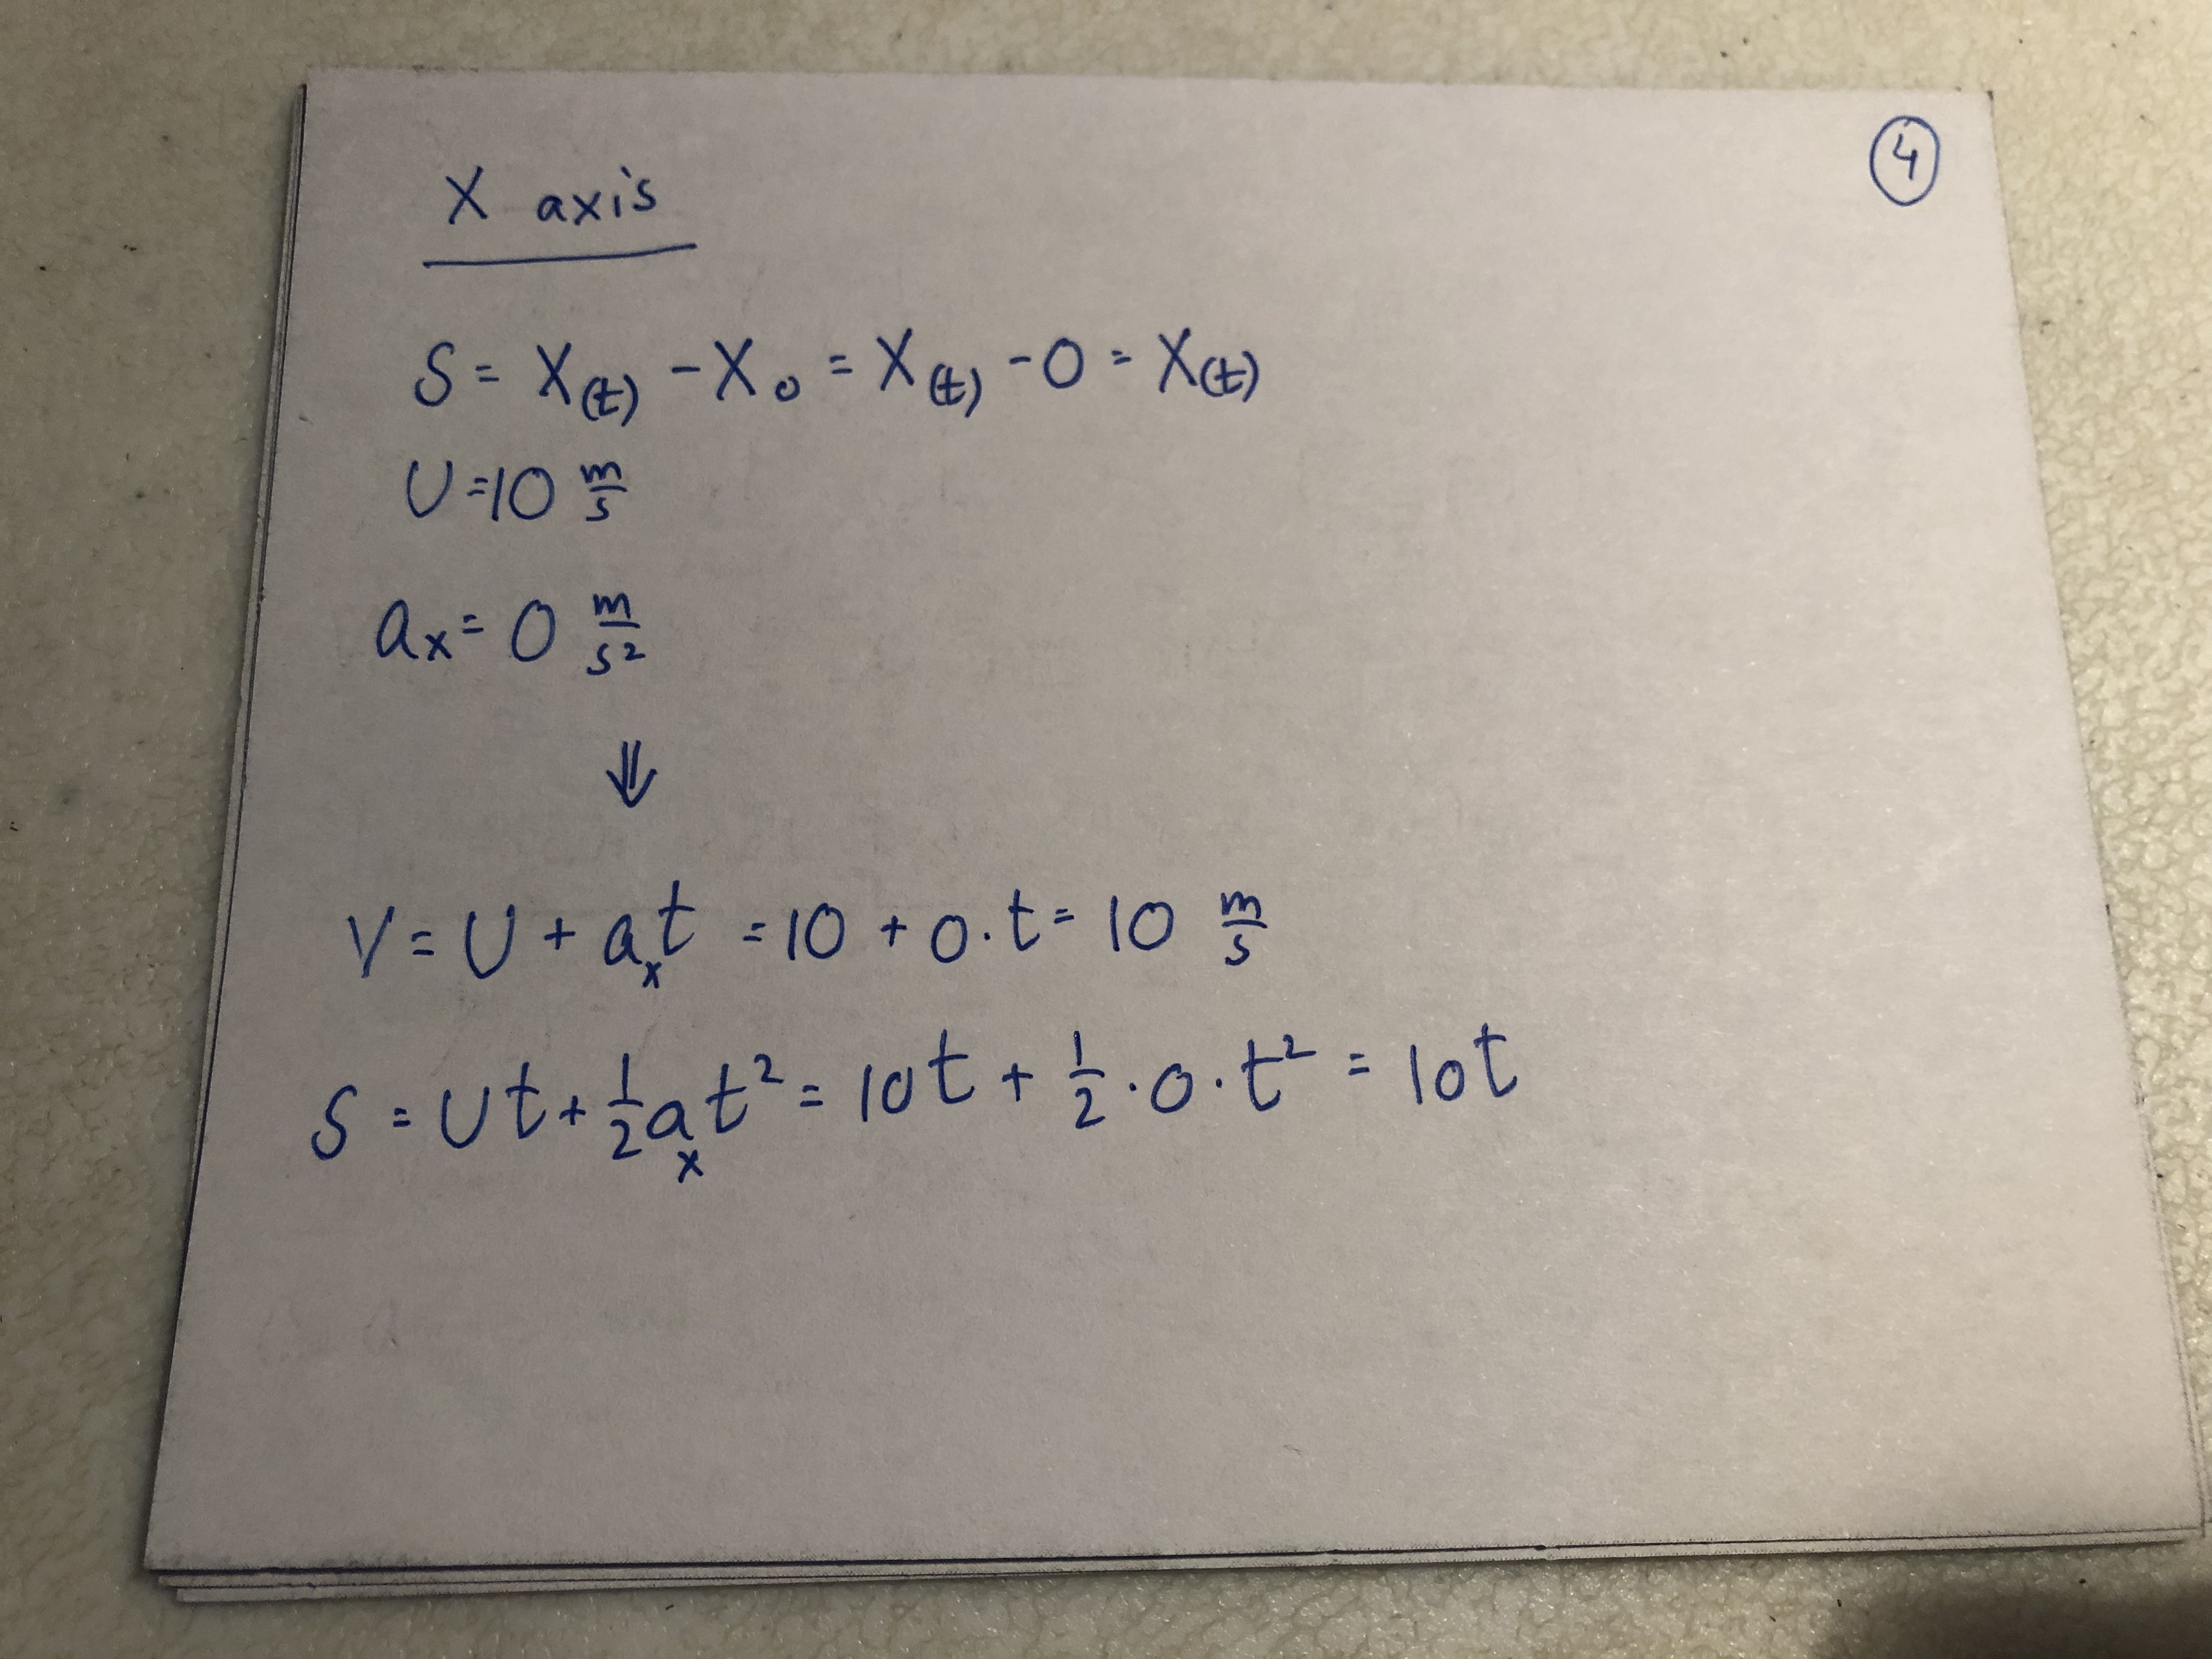 ④
X axis
S = X(t) - X₀ = X(t) - 0 = X(t)
U = 10 m/s
aₓ = 0 m/s²
⇓
V = U + aₓt = 10 + 0·t = 10 m/s
S = Ut + 1/2 aₓt² = 10t + 1/2·0·t² = 10t